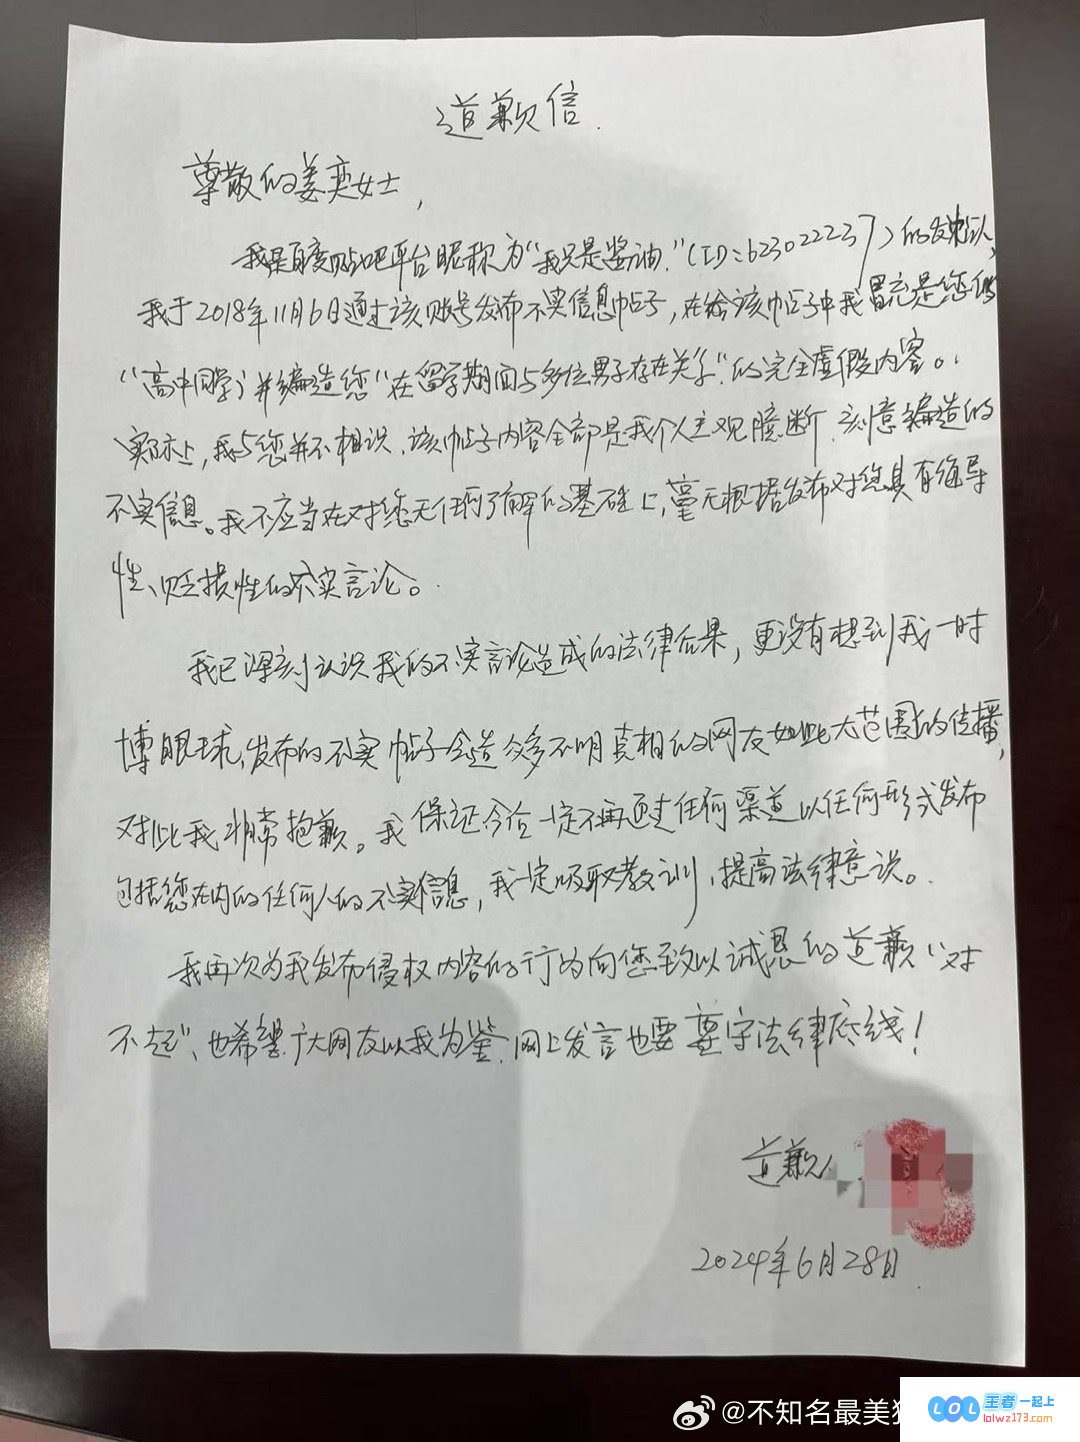 道歉信.
尊敬的姜奕女士,
我是百度贴吧平台昵称为“我只是酱油”(ID:623022237)的发帖人,
我于2018年11月6日通过该账号发布不实信息帖子,在给该帖子中我冒充是您的
“高中同学”并编造您“在留学期间与多位男子存在关系”的完全虚假内容。
实际上,我与您并不相识,该帖子内容全部是我个人主观臆断、刻意编造的
不实信息。我不应当在对您无任何了解的基础上,毫无根据发布对您具有侮辱
性、贬损性的不实言论。
我已深刻认识我的不实言论造成的法律后果,更没有想到我一时
博眼球,发布的不实帖子会造众多不明真相的网友如此大范围的传播,
对此我非常抱歉。我保证今后一定不再通过任何渠道以任何形式发布
包括您在内的任何人的不实信息,我一定吸取教训,提高法律意识。
我再次为我发布侵权内容的行为向您致以诚恳的道歉“对
不起”、也希望广大网友以我为鉴,网上发言也要尊守法律底线!
道歉人
2024年6月28日.
@不知名最美
LOL 王者一起上
lolwz173.com